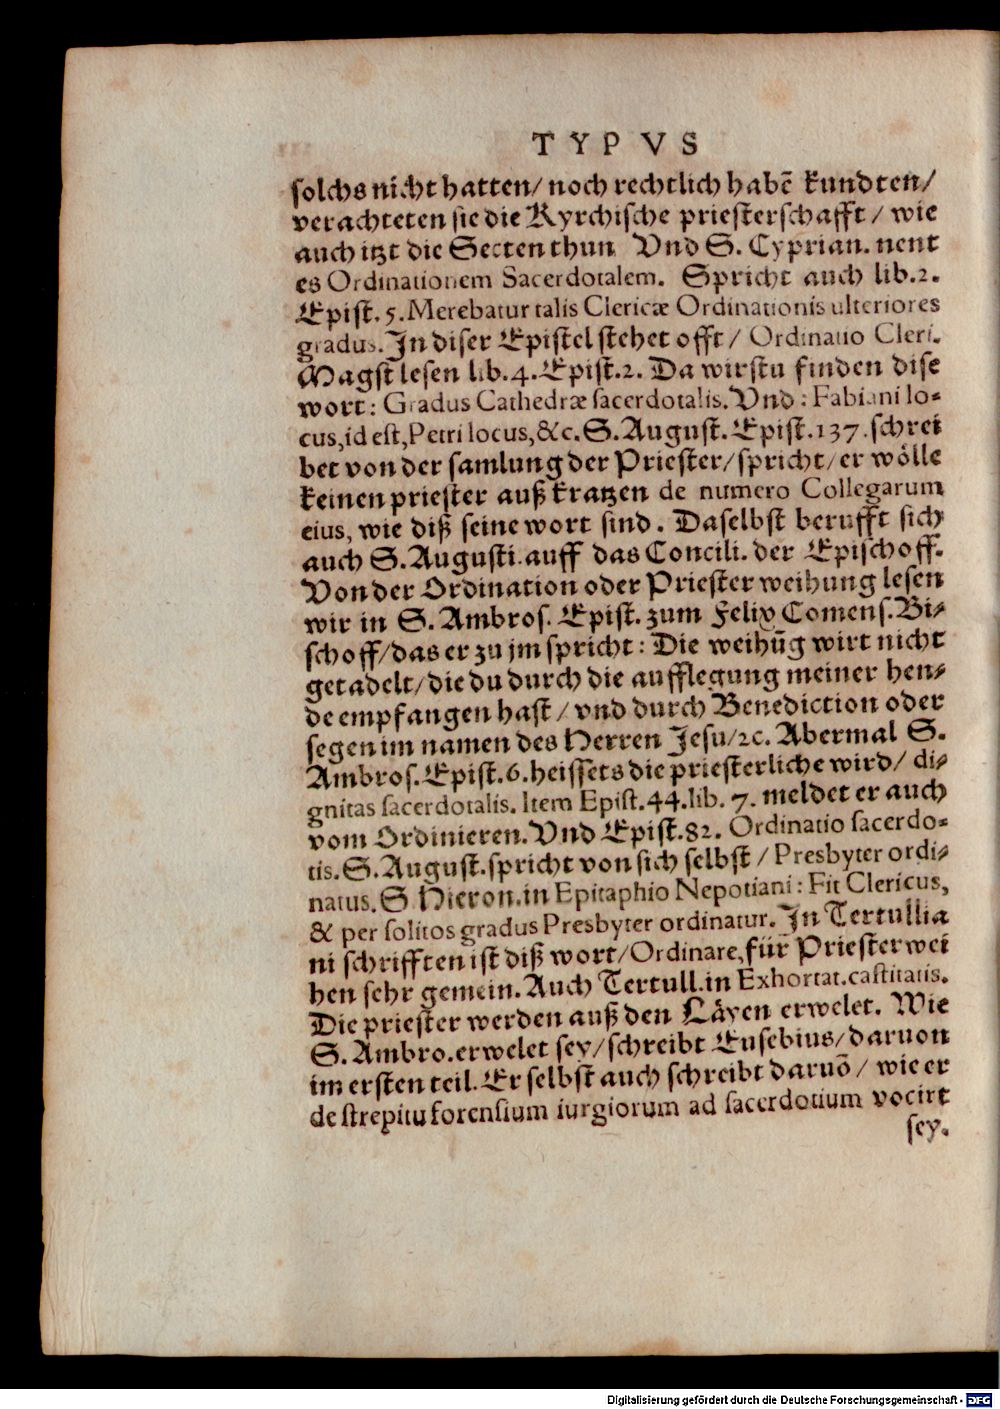 TYPVS
solchs nicht hatten/ noch rechtlich habẽ kundten/
verachteten sie die Kyrchische priesterschafft / wie
auch itzt die Secten thun. Vnd S. Cyprian. nent
es Ordinationem Sacerdotalem. Spricht auch lib.2.
Epist.5. Merebatur talis Clericæ Ordinationis ulteriores
gradus. In diser Epistel stehet offt / Ordinatio Cleri.
Magst lesen lib.4. Epist.2. Da wirstu finden dise
wort: Gradus Cathedræ sacerdotalis. Vnd: Fabiani lo-
cus, id est, Petri locus, &c. S. August. Epist.137. schrei
bet von der samlung der Priester/ spricht/ er wölle
keinen priester auß kratzen de numero Collegarum
eius, wie diß seine wort sind. Daselbst berufft sich
auch S. Augusti. auff das Concili. der Epischoff.
Von der Ordination oder Priester weihung lesen
wir in S. Ambros. Epist. zum Felix Comens. Bi-
schoff/ das er zu jm spricht: Die weihũg wirt nicht
getadelt/ die du durch die aufflegung meiner hen-
de empfangen hast / vnd durch Benediction oder
segen im namen des Herren Jesu/ꝛc. Abermal S.
Ambros. Epist.6. heissets die priesterliche wird/ di-
gnitas sacerdotalis. Item Epist.44. lib. 7. meldet er auch
vom Ordinieren. Vnd Epist.82. Ordinatio sacerdo-
tis. S. August. spricht von sich selbst / Presbyter ordi-
natus. S Hieron. in Epitaphio Nepotiani: Fit Clericus,
& per solitos gradus Presbyter ordinatur. In Tertullia
ni schrifften ist diß wort/ Ordinare, für Priester wei
hen sehr gemein. Auch Tertull. in Exhortat. castitatis.
Die priester werden auß den Läyen erwelet. Wie
S. Ambro. erwelet sey/ schreibt Eusebius/ daruon
im ersten teil. Er selbst auch schreibt daruõ / wie er
de strepitu forensium iurgiorum ad sacerdotium vocirt
sey.
Digitalisierung gefördert durch die Deutsche Forschungsgemeinschaft - DFG